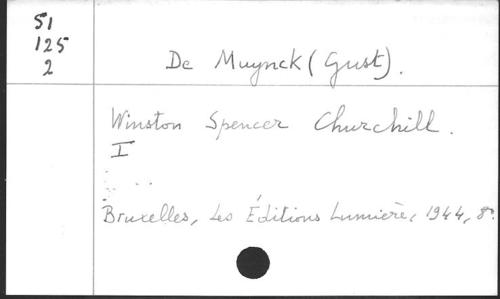 51
125
2
De Muynck (Gust).
Winston Spencer Churchill.
I
Bruxelles, Les Éditions Lumière, 1944, 8°.